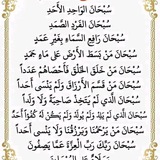 سُبْحَانَ الْوَاحِدِ الْأَحَدِ
سُبْحَانَ الْفَرْدِ الصَّمَدِ
سُبْحَانَ رَافِعِ السَّمَاءِ بِغَيْرِ عَمَدٍ
سُبْحَانَ مَنْ بَسَطَ الْأَرْضَ عَلَى مَاءٍ جَمَدٍ
سُبْحَانَ مَنْ خَلَقَ الْخَلْقَ فَأَحْصَاهُمْ عَدَدًا
سُبْحَانَ مَنْ قَسَمَ الْأَرْزَاقَ وَلَمْ يَنْسَى أَحَدًا
سُبْحَانَ الَّذِي لَمْ يَتَّخِذْ صَاحِبَةً وَلَا وَلَدًا
سُبْحَانَ الَّذِي لَمْ يَلِدْ وَلَمْ يُولَدْ وَلَمْ يَكُنْ لَهُ كُفُوًا أَحَدٌ
سُبْحَانَ مَنْ يَرْحَمُنَا وَيَرْزُقُنَا وَلَا يَنْسَى أَحَدًا
سُبْحَانَ رَبِّكَ رَبِّ الْعِزَّةِ عَمَّا يَصِفُونَ